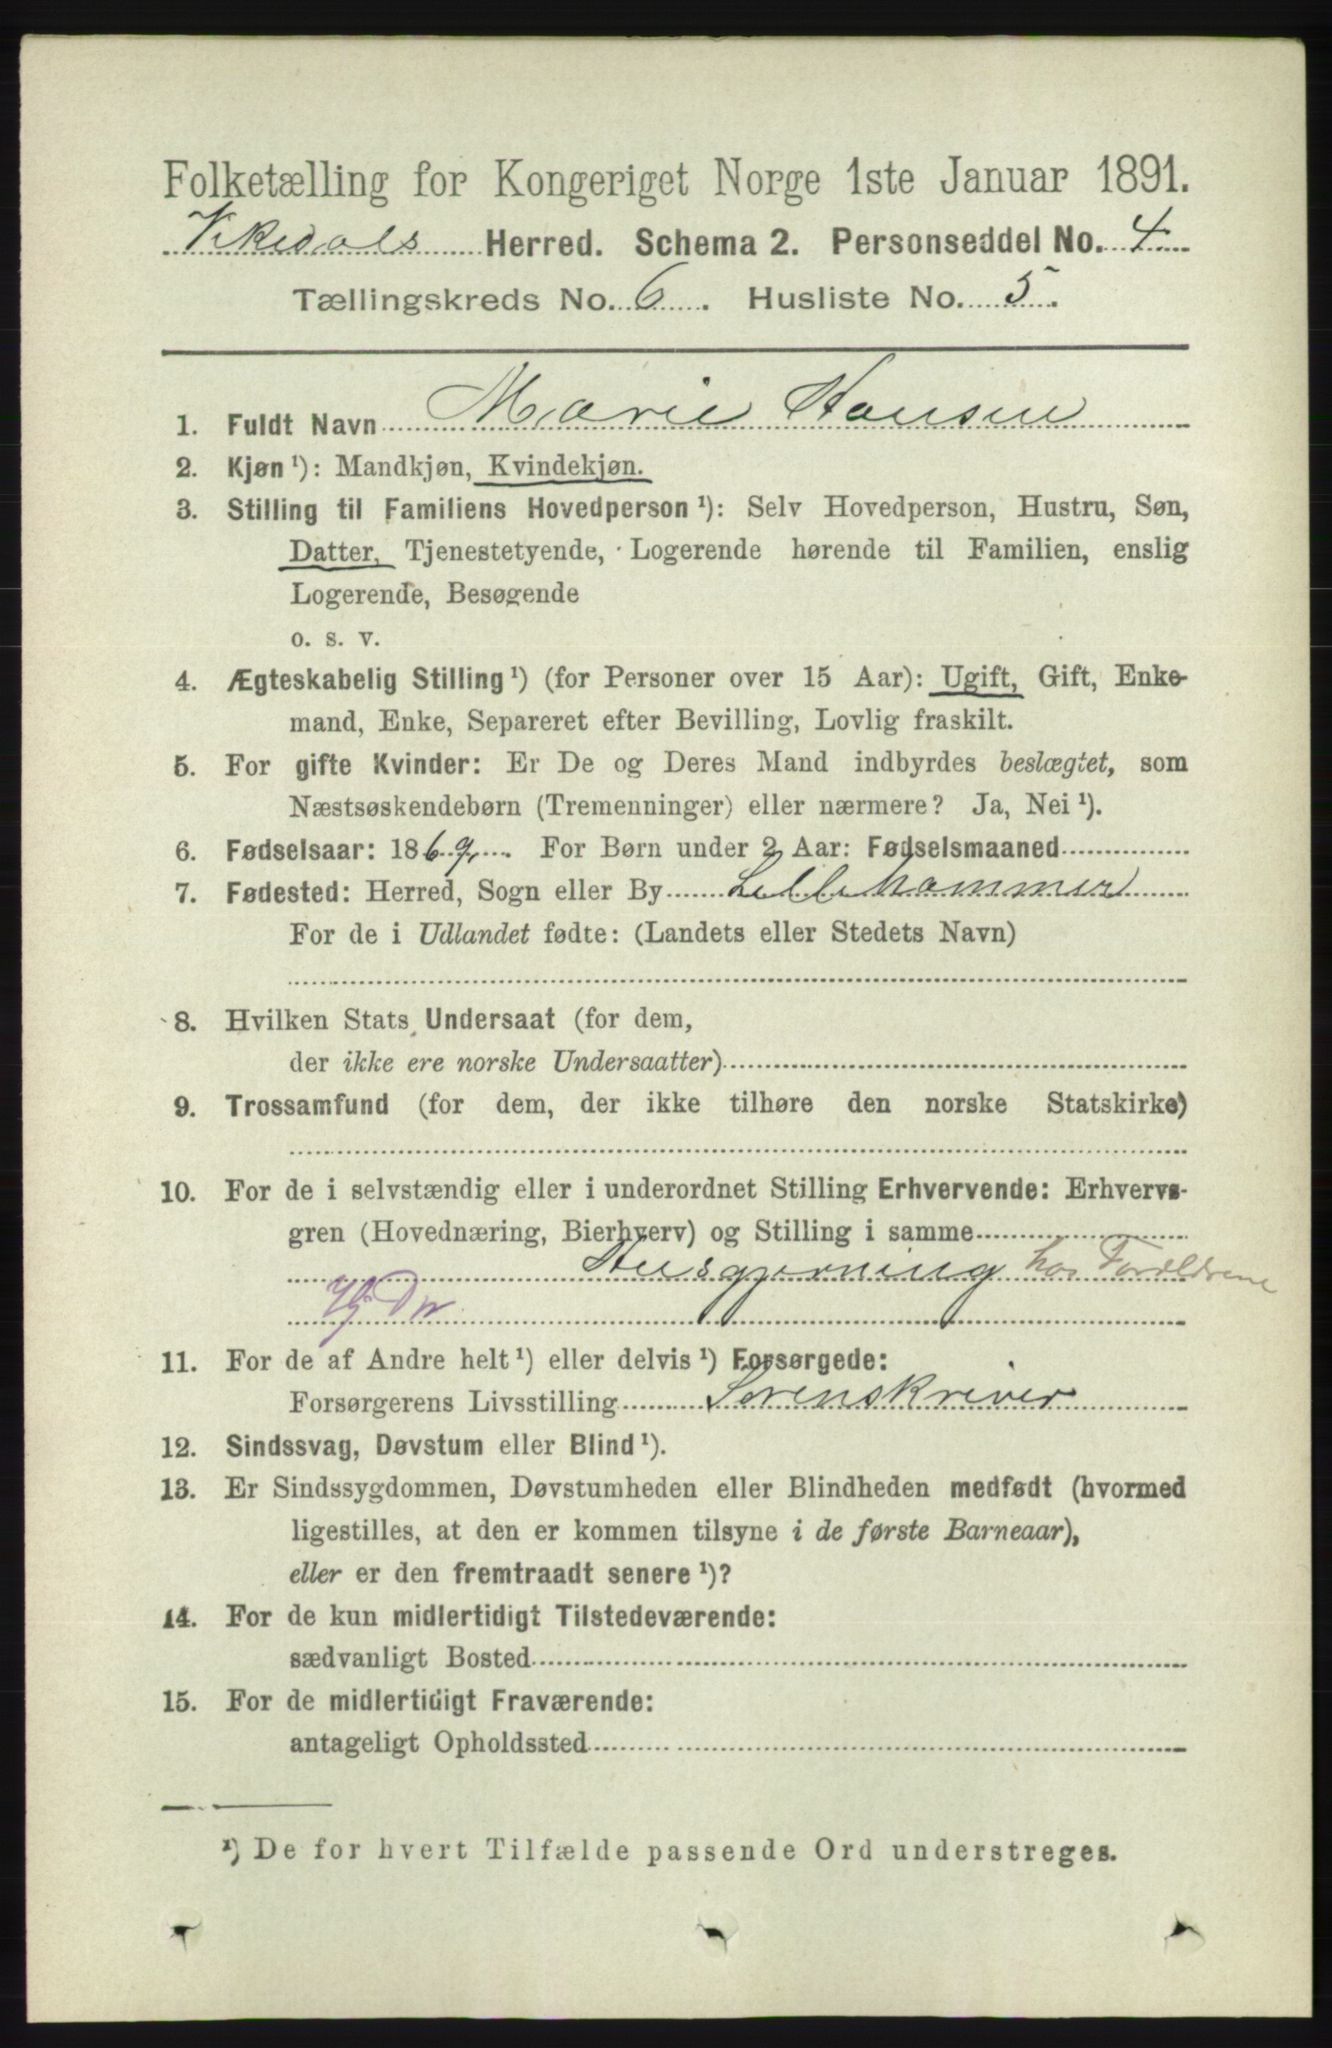 Folketælling for Kongeriget Norge 1ste Januar 1891.
Vikedals Herred. Schema 2. Personseddel No. 4
Tællingskreds No. 6. Husliste No. 5.
1. Fuldt Navn Marie Hansen
2. Kjøn ¹): Mandkjøn, Kvindekjøn.
3. Stilling til Familiens Hovedperson ¹): Selv Hovedperson, Hustru, Søn,
Datter, Tjenestetyende, Logerende hørende til Familien, enslig
Logerende, Besøgende
o. s. v.
4. Ægteskabelig Stilling ¹) (for Personer over 15 Aar): Ugift, Gift, Enke-
mand, Enke, Separeret efter Bevilling, Lovlig fraskilt.
5. For gifte Kvinder: Er De og Deres Mand indbyrdes beslægtet, som
Næstsøskendebørn (Tremenninger) eller nærmere? Ja, Nei ¹).
6. Fødselsaar: 1869. For Børn under 2 Aar: Fødselsmaaned
7. Fødested: Herred, Sogn eller By Lillehammer
For de i Udlandet fødte: (Landets eller Stedets Navn)
8. Hvilken Stats Undersaat (for dem,
der ikke ere norske Undersaatter)
9. Trossamfund (for dem, der ikke tilhøre den norske Statskirke)
10. For de i selvstændig eller i underordnet Stilling Erhvervende: Erhvervs-
gren (Hovednæring, Bierhverv) og Stilling i samme
Husgjerning hos Forældrene
Hj. Dr
11. For de af Andre helt ¹) eller delvis ¹) Forsørgede:
Forsørgerens Livsstilling Sorenskriver
12. Sindssvag, Døvstum eller Blind ¹).
13. Er Sindssygdommen, Døvstumheden eller Blindheden medfødt (hvormed
ligestilles, at den er kommen tilsyne i de første Barneaar),
eller er den fremtraadt senere ¹)?
14. For de kun midlertidigt Tilstedeværende:
sædvanligt Bosted
15. For de midlertidigt Fraværende:
antageligt Opholdssted
¹) De for hvert Tilfælde passende Ord understreges.